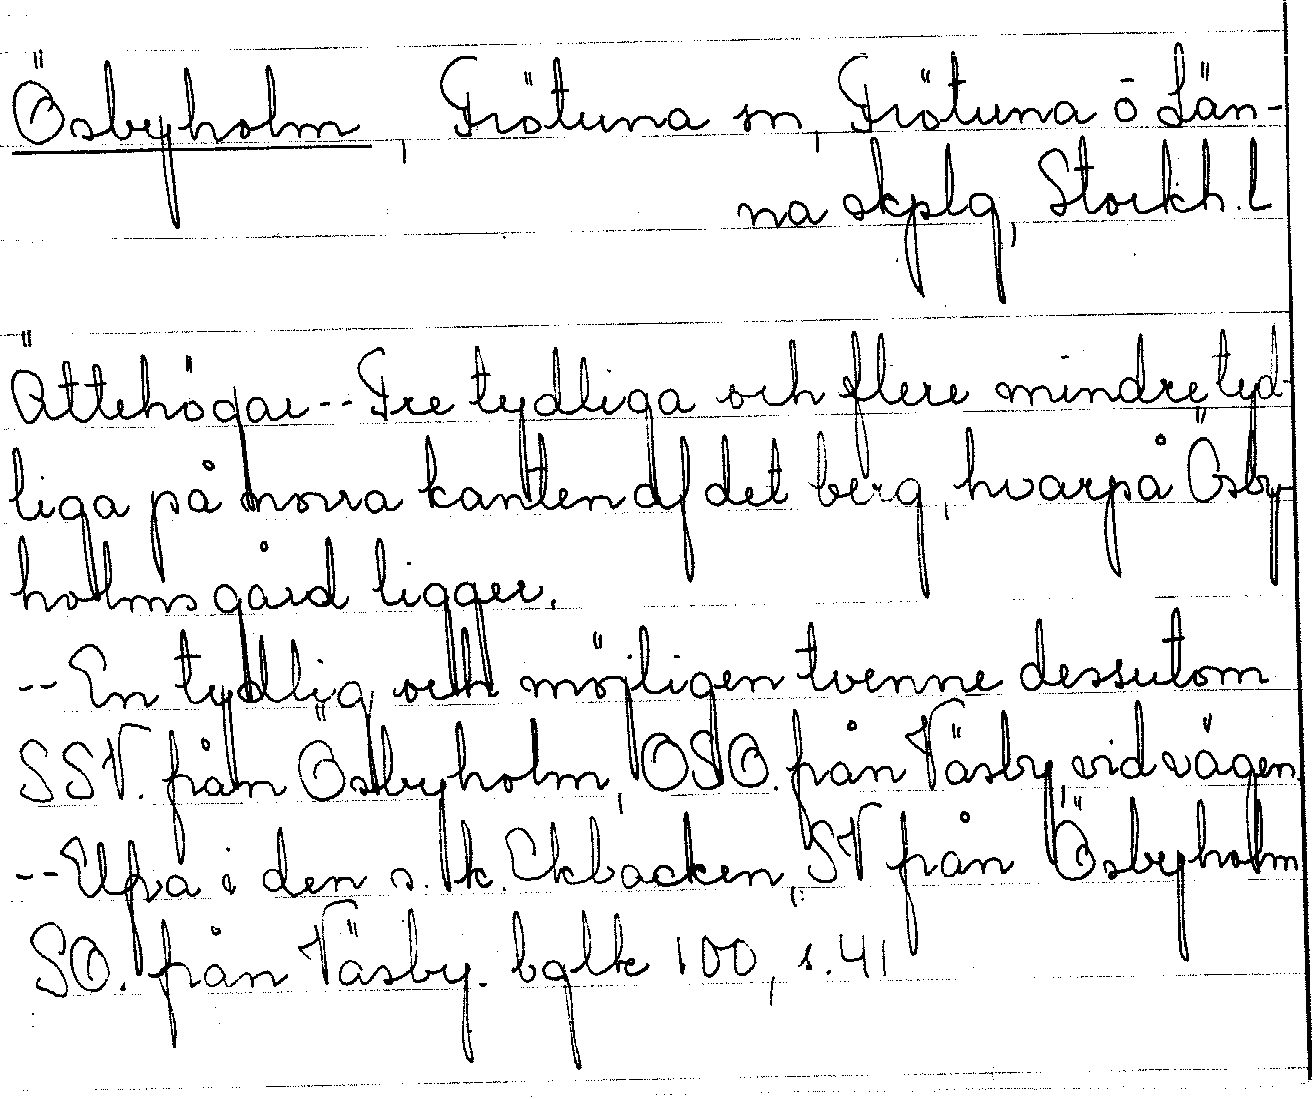 Ösbyholm, Frötuna sn, Frötuna o Län-
na skplg, Stockh. L
Ättehögar -- Tre tydliga och flere mindre tyd-
liga på norra kanten af det berg, hvarpå Ösby-
holms gård ligger.
-- En tydlig och möjligen tvenne dessutom
SSV. från Ösbyholm, OSO. från Väsby, vid vägen.
-- Elfva i den s. k. Ekbacken, SV från Ösbyholm
SO. från Väsby. bglk 100, s. 41